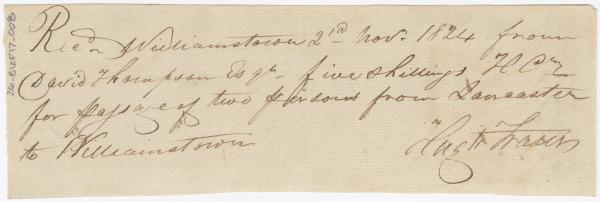 26-B12F17-008
Rec'd Williamstown 2nd Novr. 1824 from
David Thompson Esqr. five shillings H Cy
for passage of two persons from Lancaster
to Williamstown
Hugh Fraser